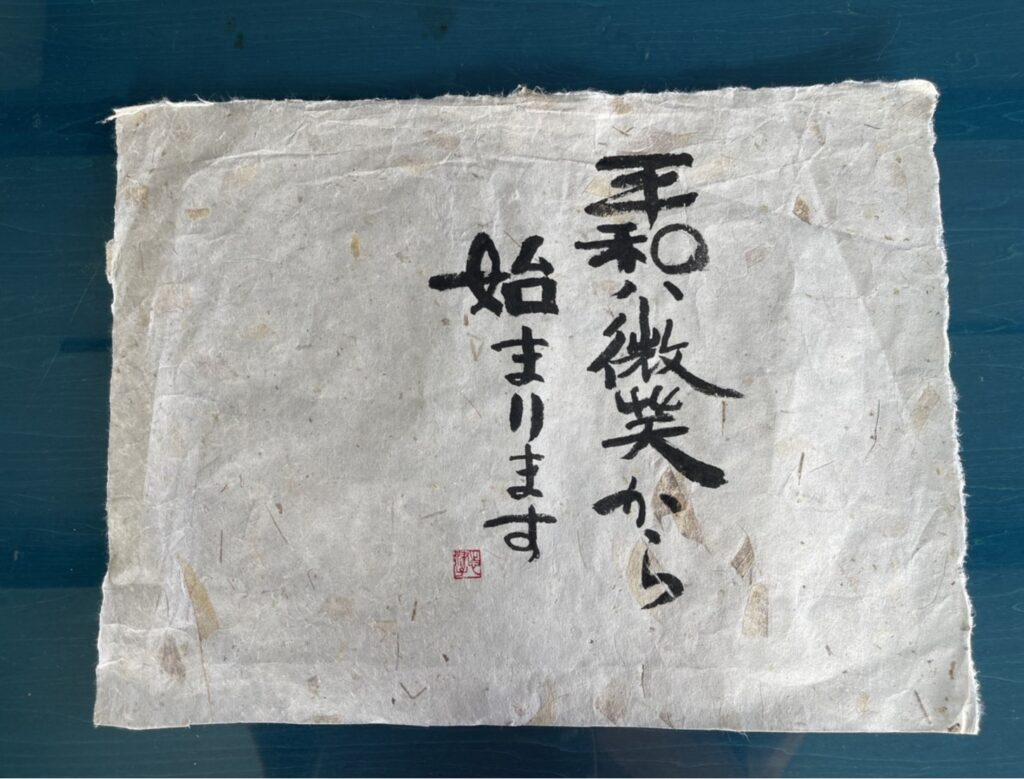 平和ハ微笑から
始まります